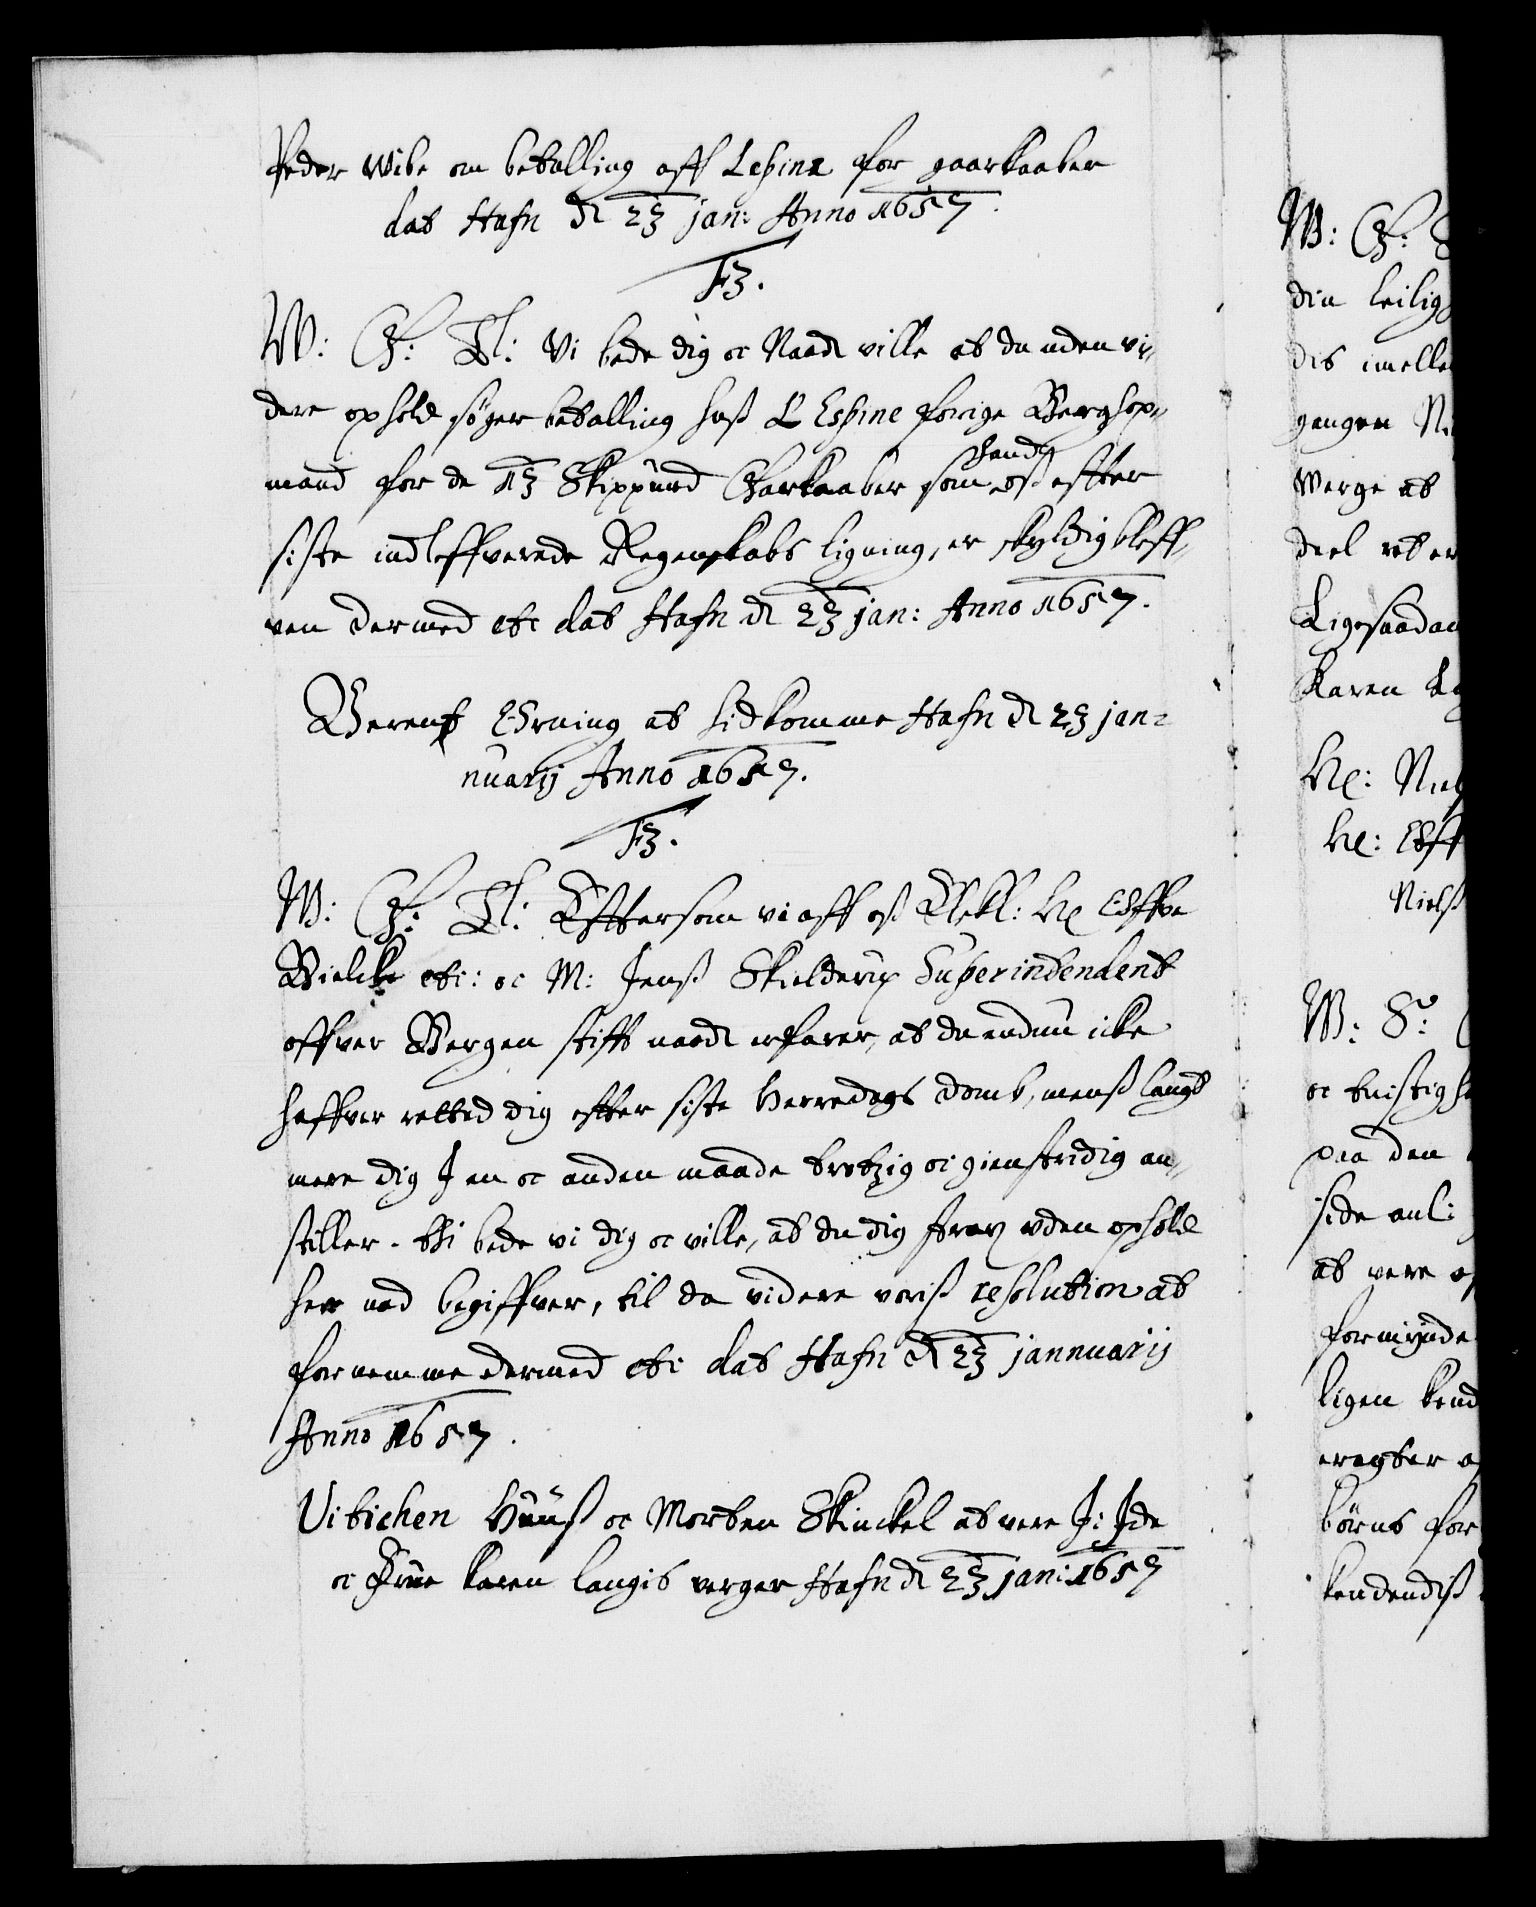 Peder Wibe om betalling aff Lespine for gaarkaaber
dat Hafn d 23 jan: Anno 1657.
F3.
W: G: T: Vi bede dig oc Naadl ville at du uden vi-
dere ophold söger betalling hoß L Espine forige Berghop-
mand for de 13 Skippund Garkaaber som hand oß effter
siste indleffverede Regenskabs ligning, er skyldig bleff-
ven dermed etc dat Hafn d 23 jan: Anno 1657.
Berent Ørning at hidkomme Hafn d 23 jan-
nuarij Anno 1657.
F3.
W: G: T: Efftersom vi aff oß Elskl: He Offve
Bielcke etc: oc M: Jenß Skielderup Superindendent
offver Bergen stift naadl erfarer, at du endnu icke
haffver retted dig effter siste Herredags domb, menß langt
mere dig J en oc anden maade trotzig oc gienstridig an-
stiller. thi bede vi dig oc ville, at du dig strax uden ophold
her ned begiffver, til da videre voriß resolution at
fornemme dermed etc dat Hafn d 23 jannuarij
Anno 1657.
Vibichen Hüüß oc Morten Skinckel at vere J: Jde
oc Frue Karen langis verger Hafn d 23 jan: 1657
W: G:
din leilig
dis imelle
gangen
Werge at
deel
Ligesaadan
Karen
He: Niel
He: Off
Nielß
W: S:
oc tuistigh
paa den
side anl:
at vere
formynde
ligen kend
eragter
börns for
kendendiß